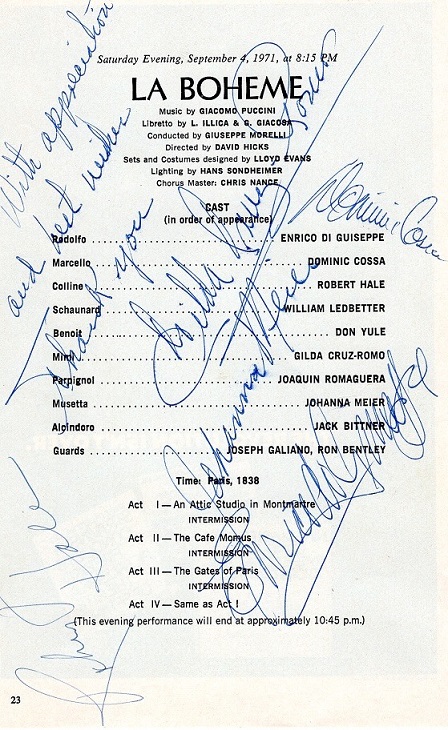 Saturday Evening, September 4, 1971, at 8:15 PM
LA BOHEME
Music by GIACOMO PUCCINI
Libretto by L. ILLICA & G. GIACOSA
Conducted by GIUSEPPE MORELLI
Directed by DAVID HICKS
Sets and Costumes designed by LLOYD EVANS
Lighting by HANS SONDHEIMER
Chorus Master: CHRIS NANCE
CAST
(in order of appearance)
Rodolfo ENRICO DI GUISEPPE
Marcello DOMINIC COSSA
Colline ROBERT HALE
Schaunard WILLIAM LEDBETTER
Benoit DON YULE
Mimi GILDA CRUZ-ROMO
Parpignol JOAQUIN ROMAGUERA
Musetta JOHANNA MEIER
Alcindoro JACK BITTNER
Guards JOSEPH GALIANO, RON BENTLEY
Time: Paris, 1838
Act I—An Attic Studio in Montmartre
INTERMISSION
Act II—The Cafe Momus
INTERMISSION
Act III—The Gates of Paris
INTERMISSION
Act IV—Same as Act I
(This evening performance will end at approximately 10:45 p.m.)
23
With appreciation
and best wishes
Thank you
Gilda Cruz-Romo
Johanna Meier
Dominic Cossa